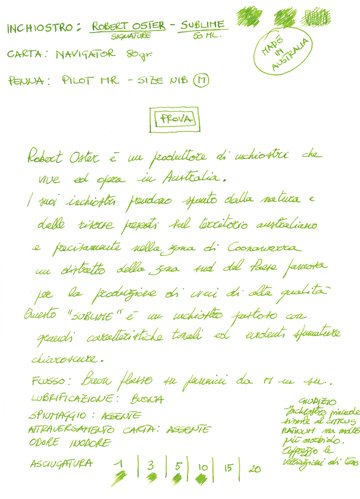 INCHIOSTRO: ROBERT OSTER - SUBLIME
SIGNATURE 50 ML.
MADE IN AUSTRALIA
CARTA: NAVIGATOR 80gr.
PENNA: PILOT MR - SIZE NIB M
PROVA
Robert Oster è un produttore di inchiostri che
vive ed opera in Australia.
I suoi inchiostri prendono spunto dalla natura e
dalle risorse presenti sul territorio australiano
e precisamente nella zona di Coonawarra
un distretto della zona sud del Paese famosa
per la produzione di vini di alta qualità
Questo "SUBLIME" è un inchiostro gustoso con
grandi caratteristiche tonali ed evidenti sfumature
chiaroscure.
FLUSSO: Buon flusso su pennini da M in su.
LUBRIFICAZIONE: BUONA
SPIUMAGGIO: ASSENTE
ATTRAVERSAMENTO CARTA: ASSENTE
ODORE INODORE
ASCIUGATURA 1 | 3 | 5 | 10 | 15 | 20
GIUDIZIO
Inchiostro piacevole
simile al CITRUS
PLATINUM ma molto
più morbido.
Apprezzo le
variazioni di tono